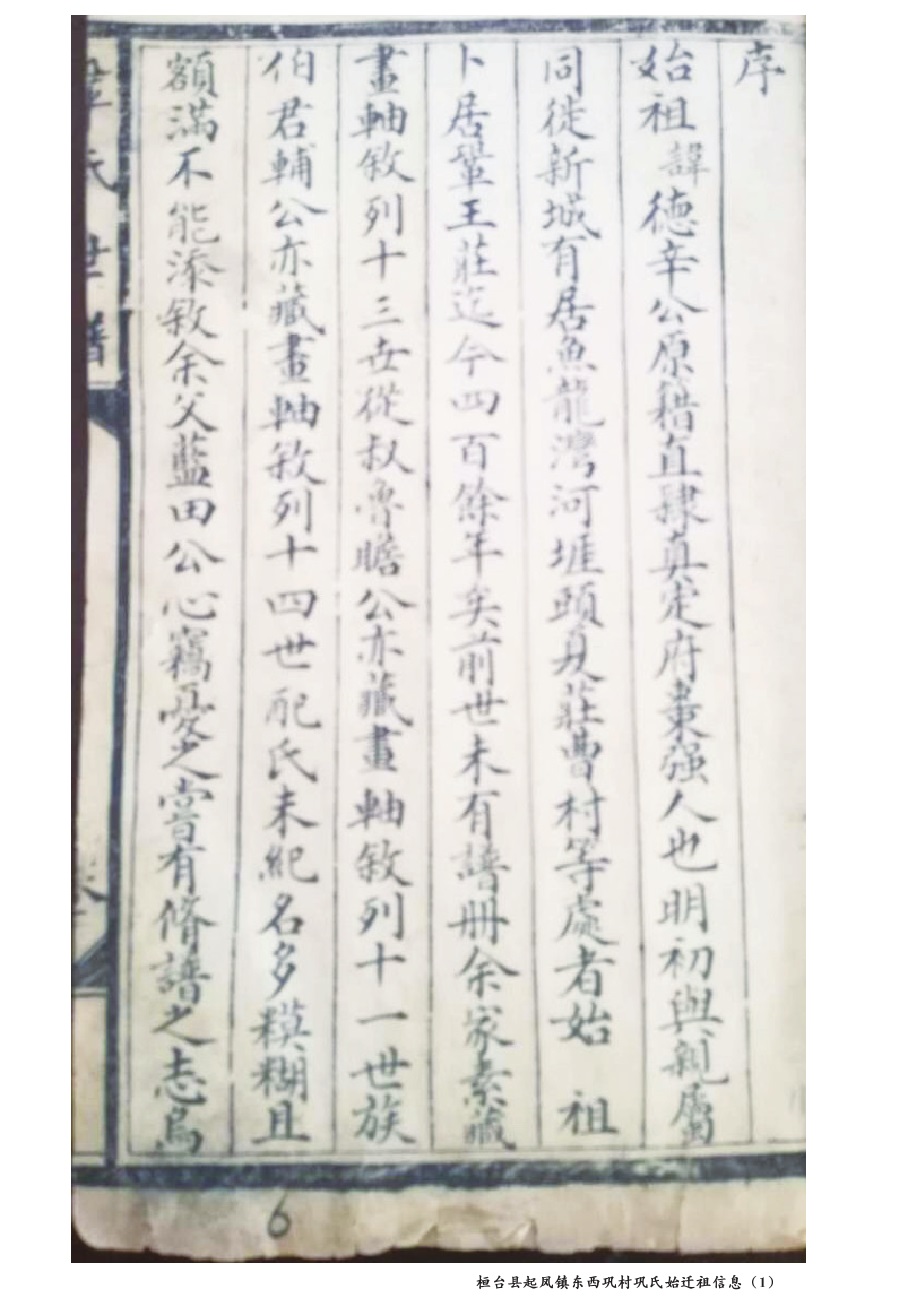 序
始祖諱德辛公原籍直隸真定府棗强人也明初與親屬
同徙新城有居魚龍灣河堐頭夏莊曹村等處者始祖
卜居鞏王莊迄今四百餘年矣前世未有譜冊余家素藏
畫軸敘列十三世從叔魯瞻公亦藏畫軸敘列十一世族
伯君輔公亦藏畫軸敘列十四世配氏未紀名多糢糊且
額滿不能添敘余父藍田公心竊憂之嘗有脩譜之志焉
氏世譜
6
桓台县起凤镇东西巩村巩氏始迁祖信息（1）